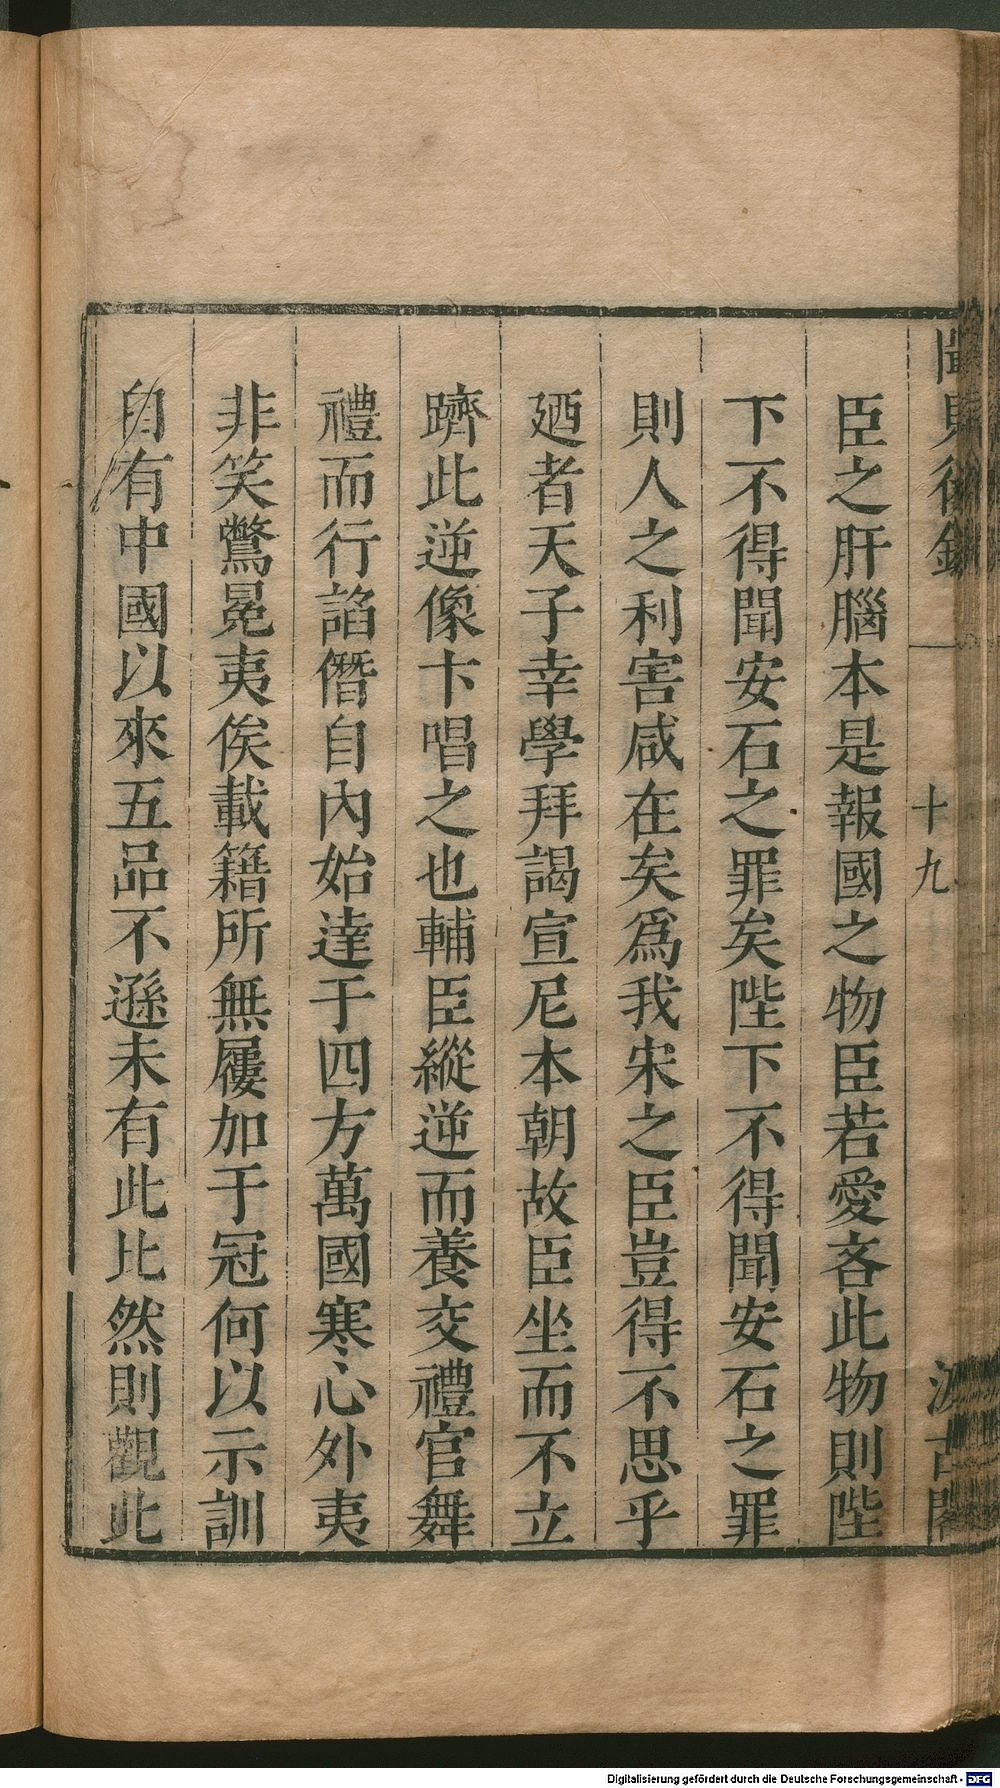 聞見後錄 十九 汲古閣
臣之肝腦本是報國之物臣若愛吝此物則陛
下不得聞安石之罪矣陛下不得聞安石之罪
則人之利害咸在矣爲我宋之臣豈得不思乎
廼者天子幸學拜謁宣尼本朝故臣坐而不立
躋此逆像卞唱之也輔臣縱逆而養交禮官舞
禮而行諂僭自內始達于四方萬國寒心外夷
非笑驚冕夷俟載籍所無屨加于冠何以示訓
自有中國以來五品不遜未有此比然則觀此
Digitalisierung gefördert durch die Deutsche Forschungsgemeinschaft - DFG